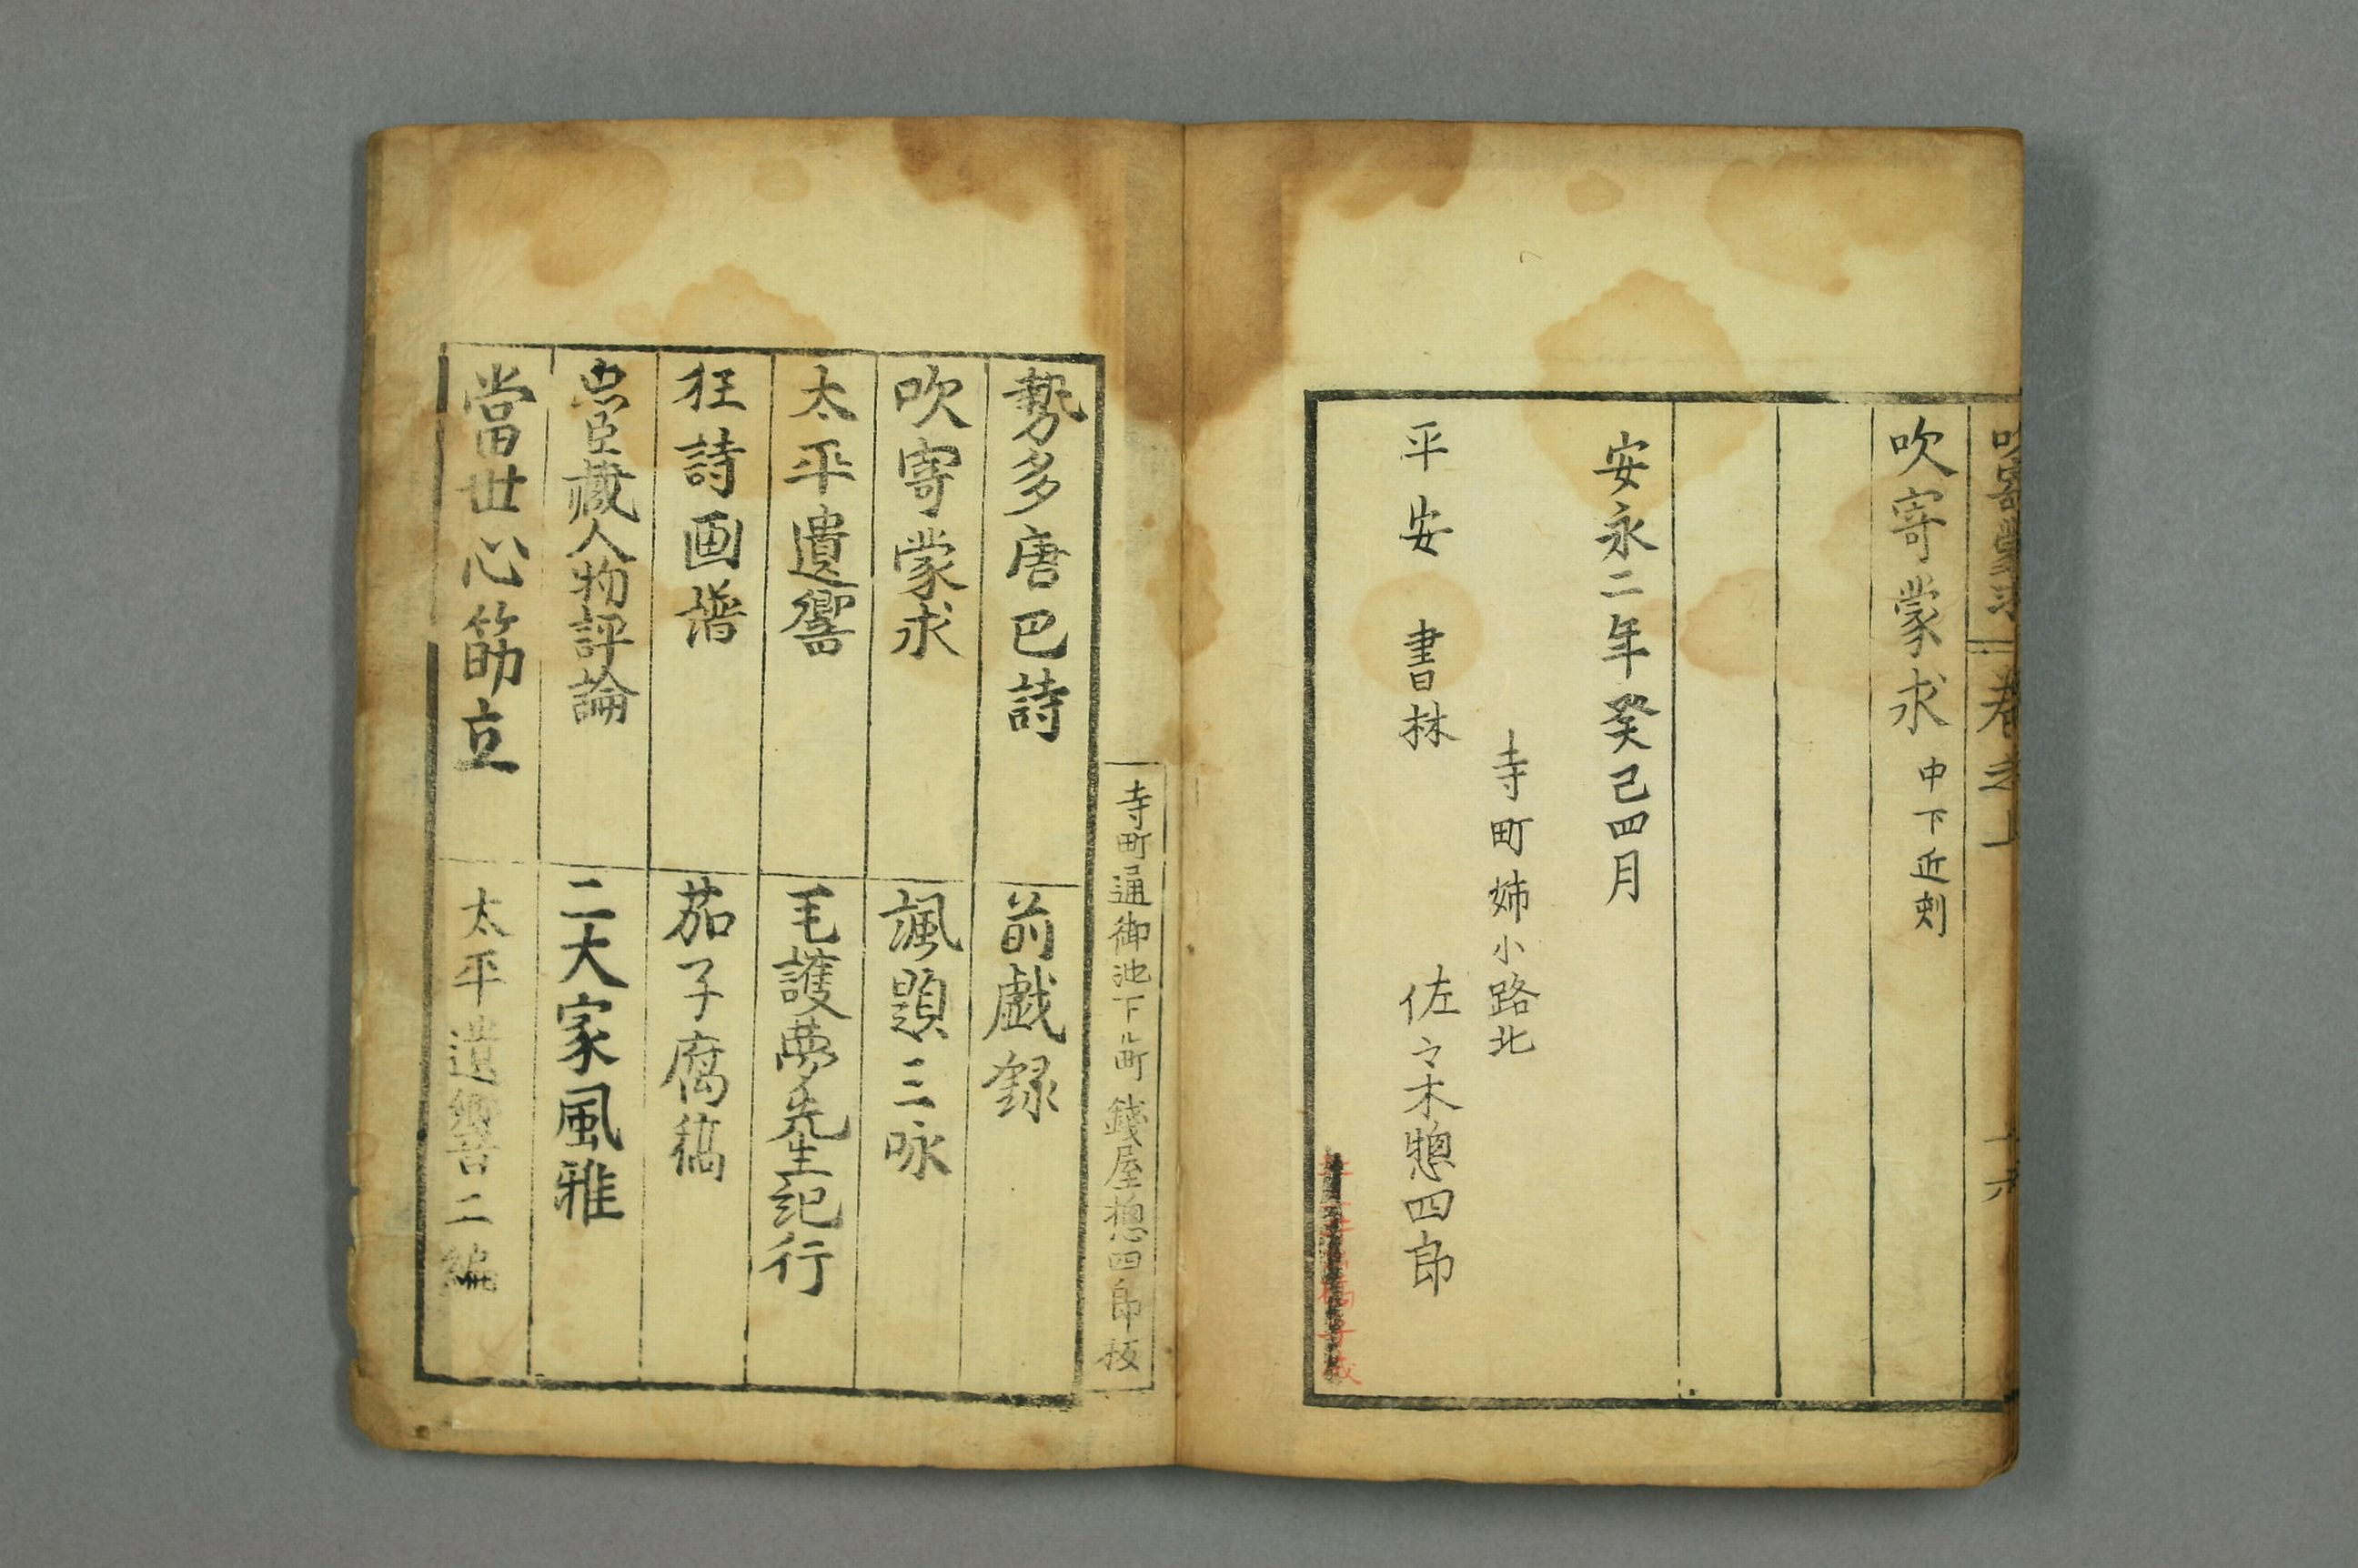 吹寄蒙求 中下近刻
安永二年癸巳四月
寺町姉小路北
平安 書林 佐々木惣四郎
寺町通御池下ル町 錢屋惣四郎板
勢多唐巴詩
前戯録
吹寄蒙求
諷題三咏
太平遺響
毛護夢先生紀行
狂詩画譜
茄子腐稿
忠臣藏人物評論
二大家風雅
當世心筋立
太平遺響二編